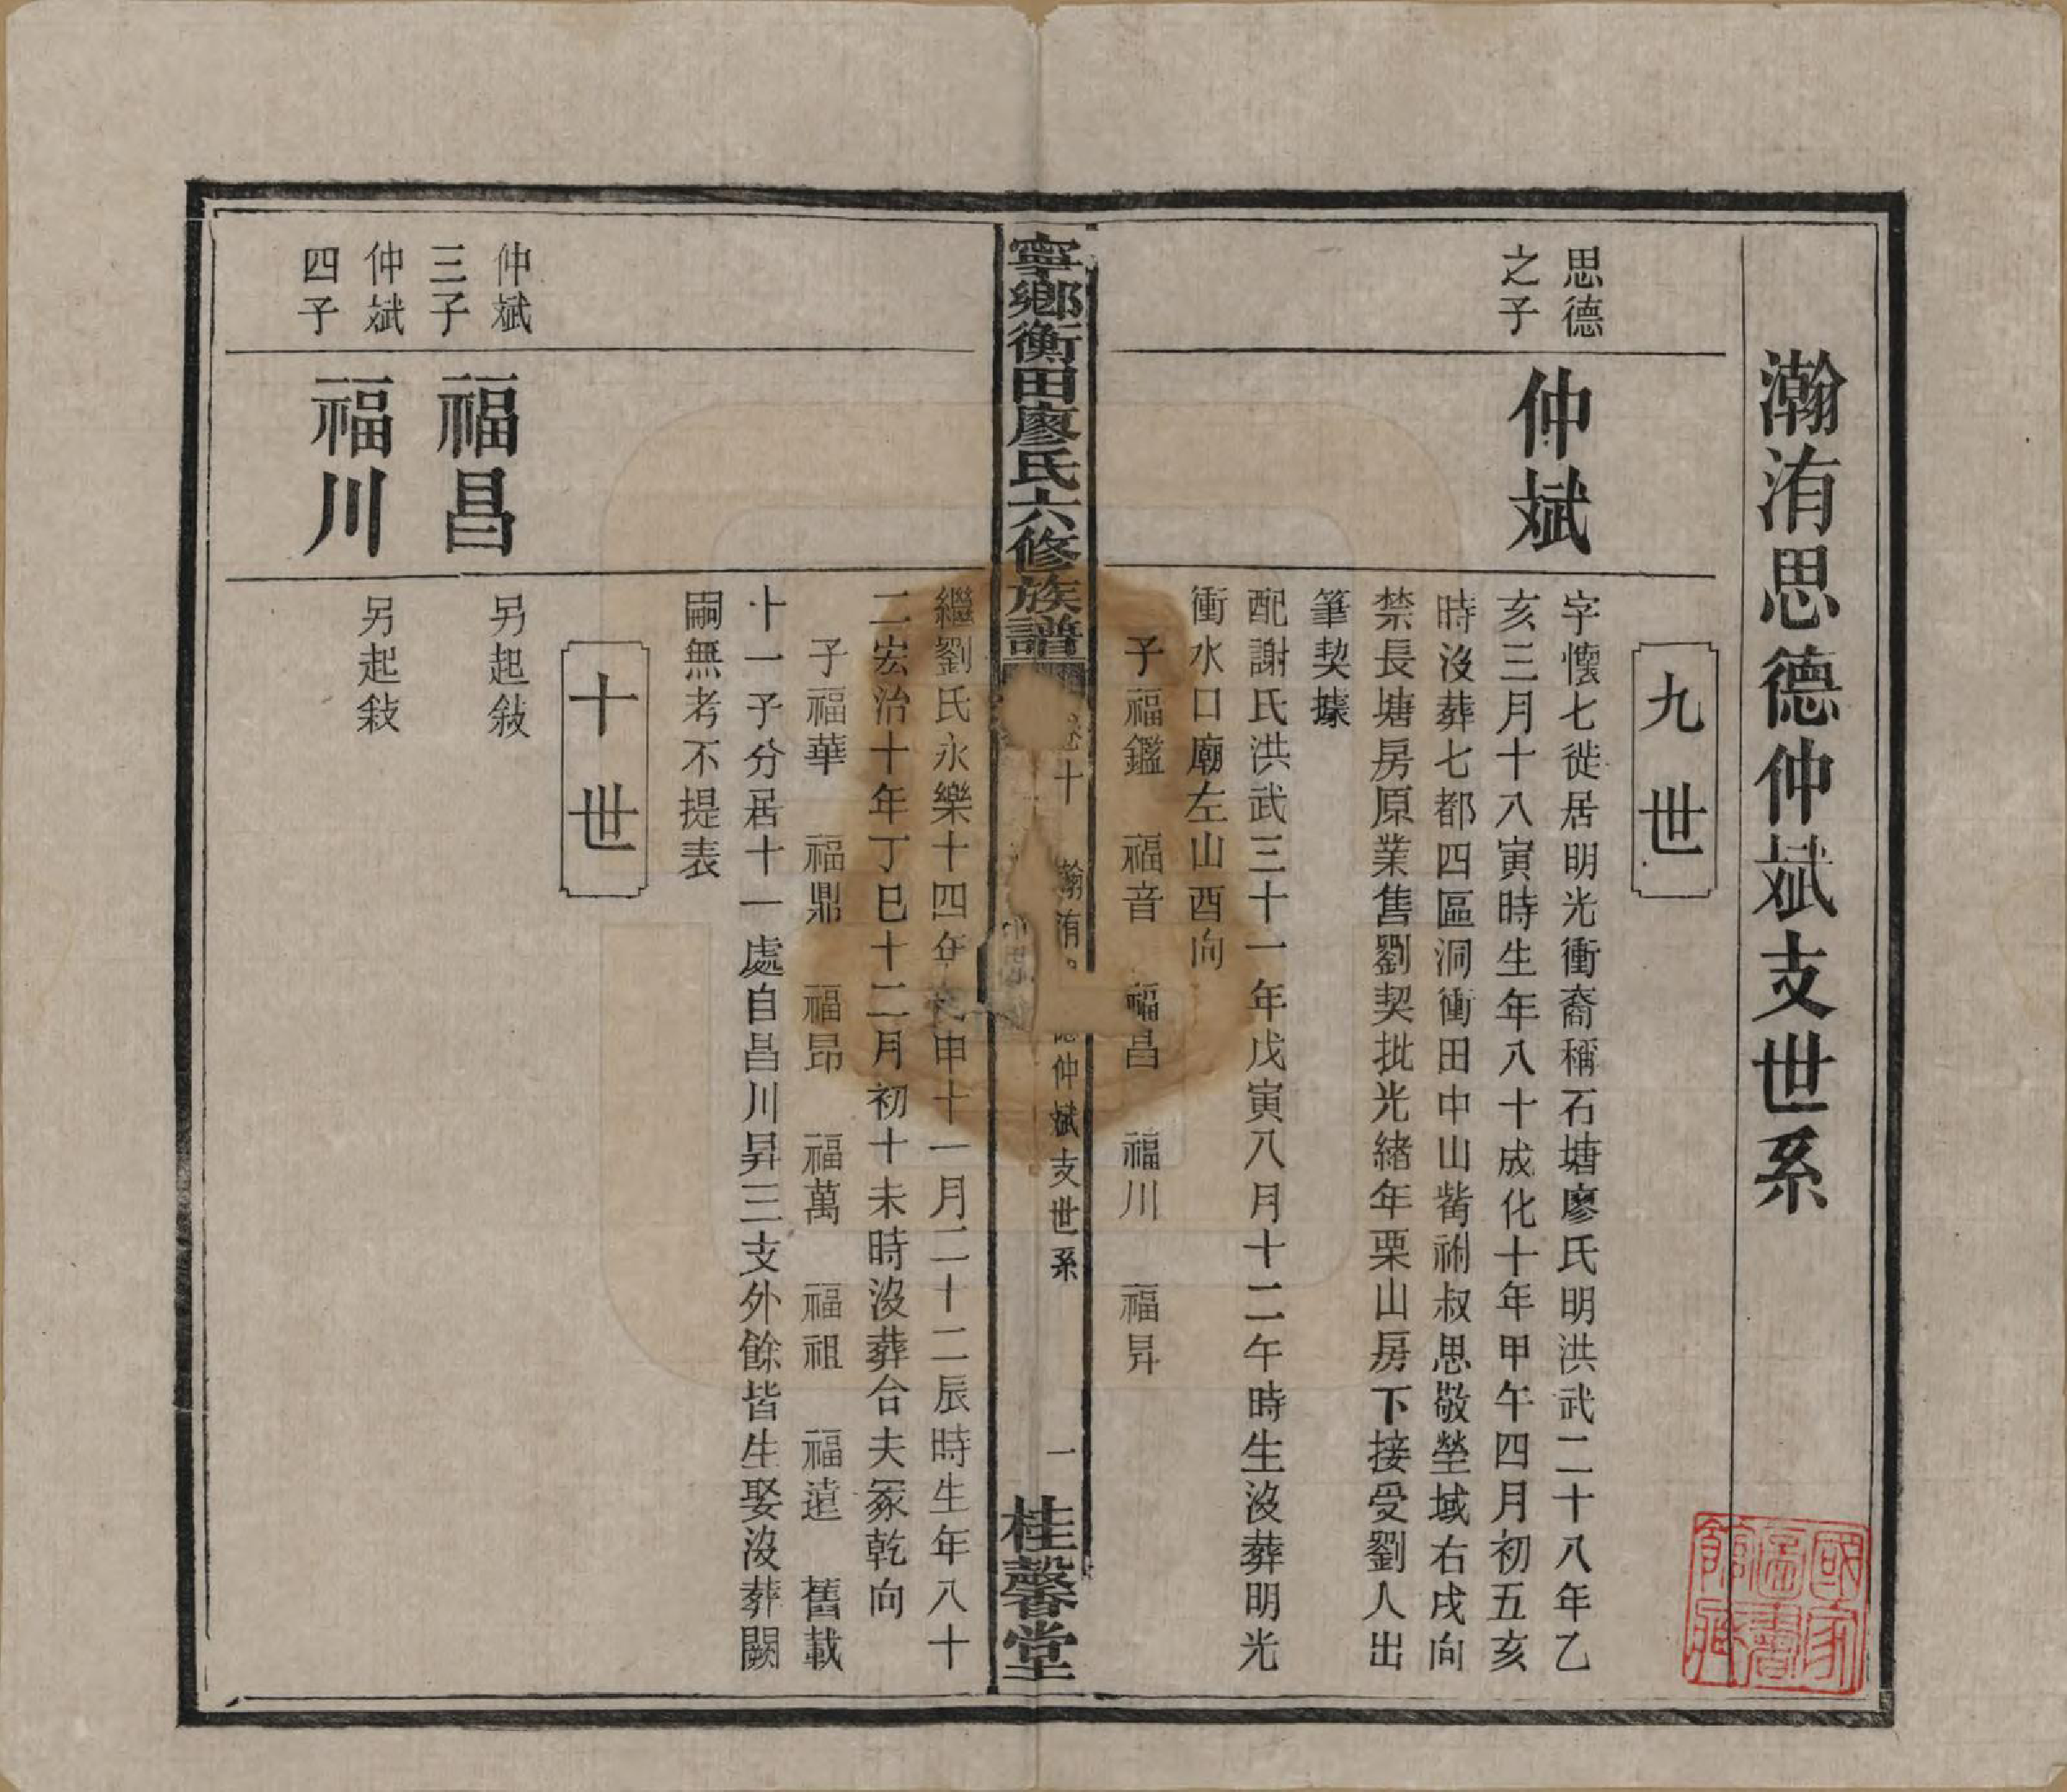 瀚洧思德仲斌支世系
九世
思德
之子
仲斌
字懷七徙居明光衝裔稱石塘廖氏明洪武二十八年乙
亥三月十八寅時生年八十成化十年甲午四月初五亥
時沒葬七都四區洞衝田中山觜祔叔思敬塋域右戌向
禁長塘房原業售劉契批光緒年栗山房下接受劉人出
筆契據
配謝氏洪武三十一年戊寅八月十二午時生沒葬明光
衝水口廟左山酉向
子福鑑 福音 福昌 福川 福昇
寧鄉衡田廖氏六修族譜
卷十 瀚洧 德仲斌支世系
一
桂馨堂
繼劉氏永樂十四年 申十一月二十二辰時生年八十
二宏治十年丁巳十二月初十未時沒葬合夫冢乾向
子福華 福鼎 福昂 福萬 福祖 福遠 舊載
十一子分居十一處自昌川昇三支外餘皆生娶沒葬闕
嗣無考不提表
十世
仲斌
三子
福昌
另起敍
仲斌
四子
福川
另起敍
國家圖書館藏